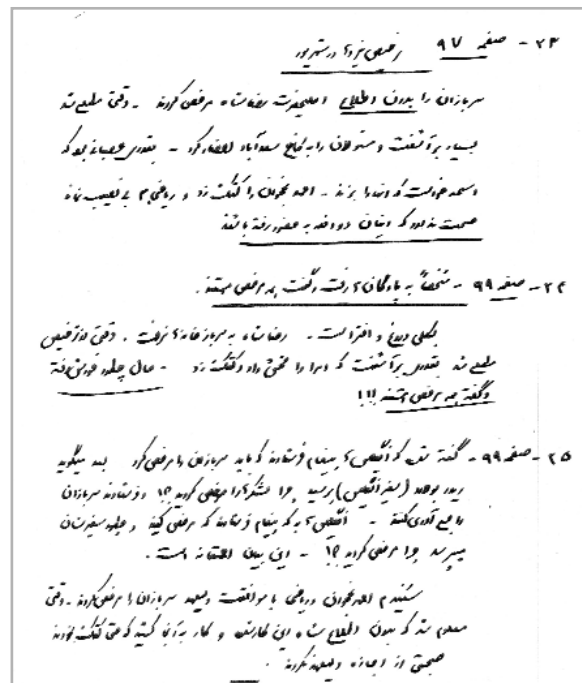 ۲۳ - صفحه ۹۷ مرخصی نیروی در شهریور
سربازان را بدون اطلاع اعلیحضرت رضاشاه مرخص کردند - وقتی مطلع شد
بسیار برآشفت و مسئولان را به کاخ سعدآباد احضار کرد - بقدری عصبانی بود که
اسلحه خواست که آنها را بزند - احمد نخجوان را کتک زد و ریاضی هم بی نصیب نماند
صحت ندارد که ایشان دو دفعه به حضور رفته باشند
۲۴ - صفحه ۹۹ - شخصاً به پادگانها رفت و گفت همه مرخص هستند.
بکلی دروغ و افترا است - رضاشاه به سربازخانه‌ها نرفت. وقتی از ترخیص
مطلع شد بقدری برآشفت که وزرا را فحش داد و کتک زد - حال چطور خودش رفته
و گفته همه مرخص هستند!!!
۲۵ - صفحه ۹۹ - گفته شده که انگلیس‌ها پیغام فرستادند که باید سربازان را مرخص کرد بعد میگوید
ریدر بولارد (سفیر انگلیس) پرسید چرا لشکرها را مرخص کردید؟! و فرستادند سربازان
را جمع آوری کنند - انگلیس‌ها که پیغام فرستادند که مرخص کنید و چطور سفیرشان
میپرسد چرا مرخص کردید؟! - این بیان احمقانه است.
شنیدم احمد نخجوان و ریاضی با موافقت ولیعهد سربازان را مرخص کردند - وقتی
معلوم شد که بدون اطلاع شاه این کار شده و کار به آنجا کشید که حتی کتک خوردند
صحبتی از اجازه ولیعهد نکردند.